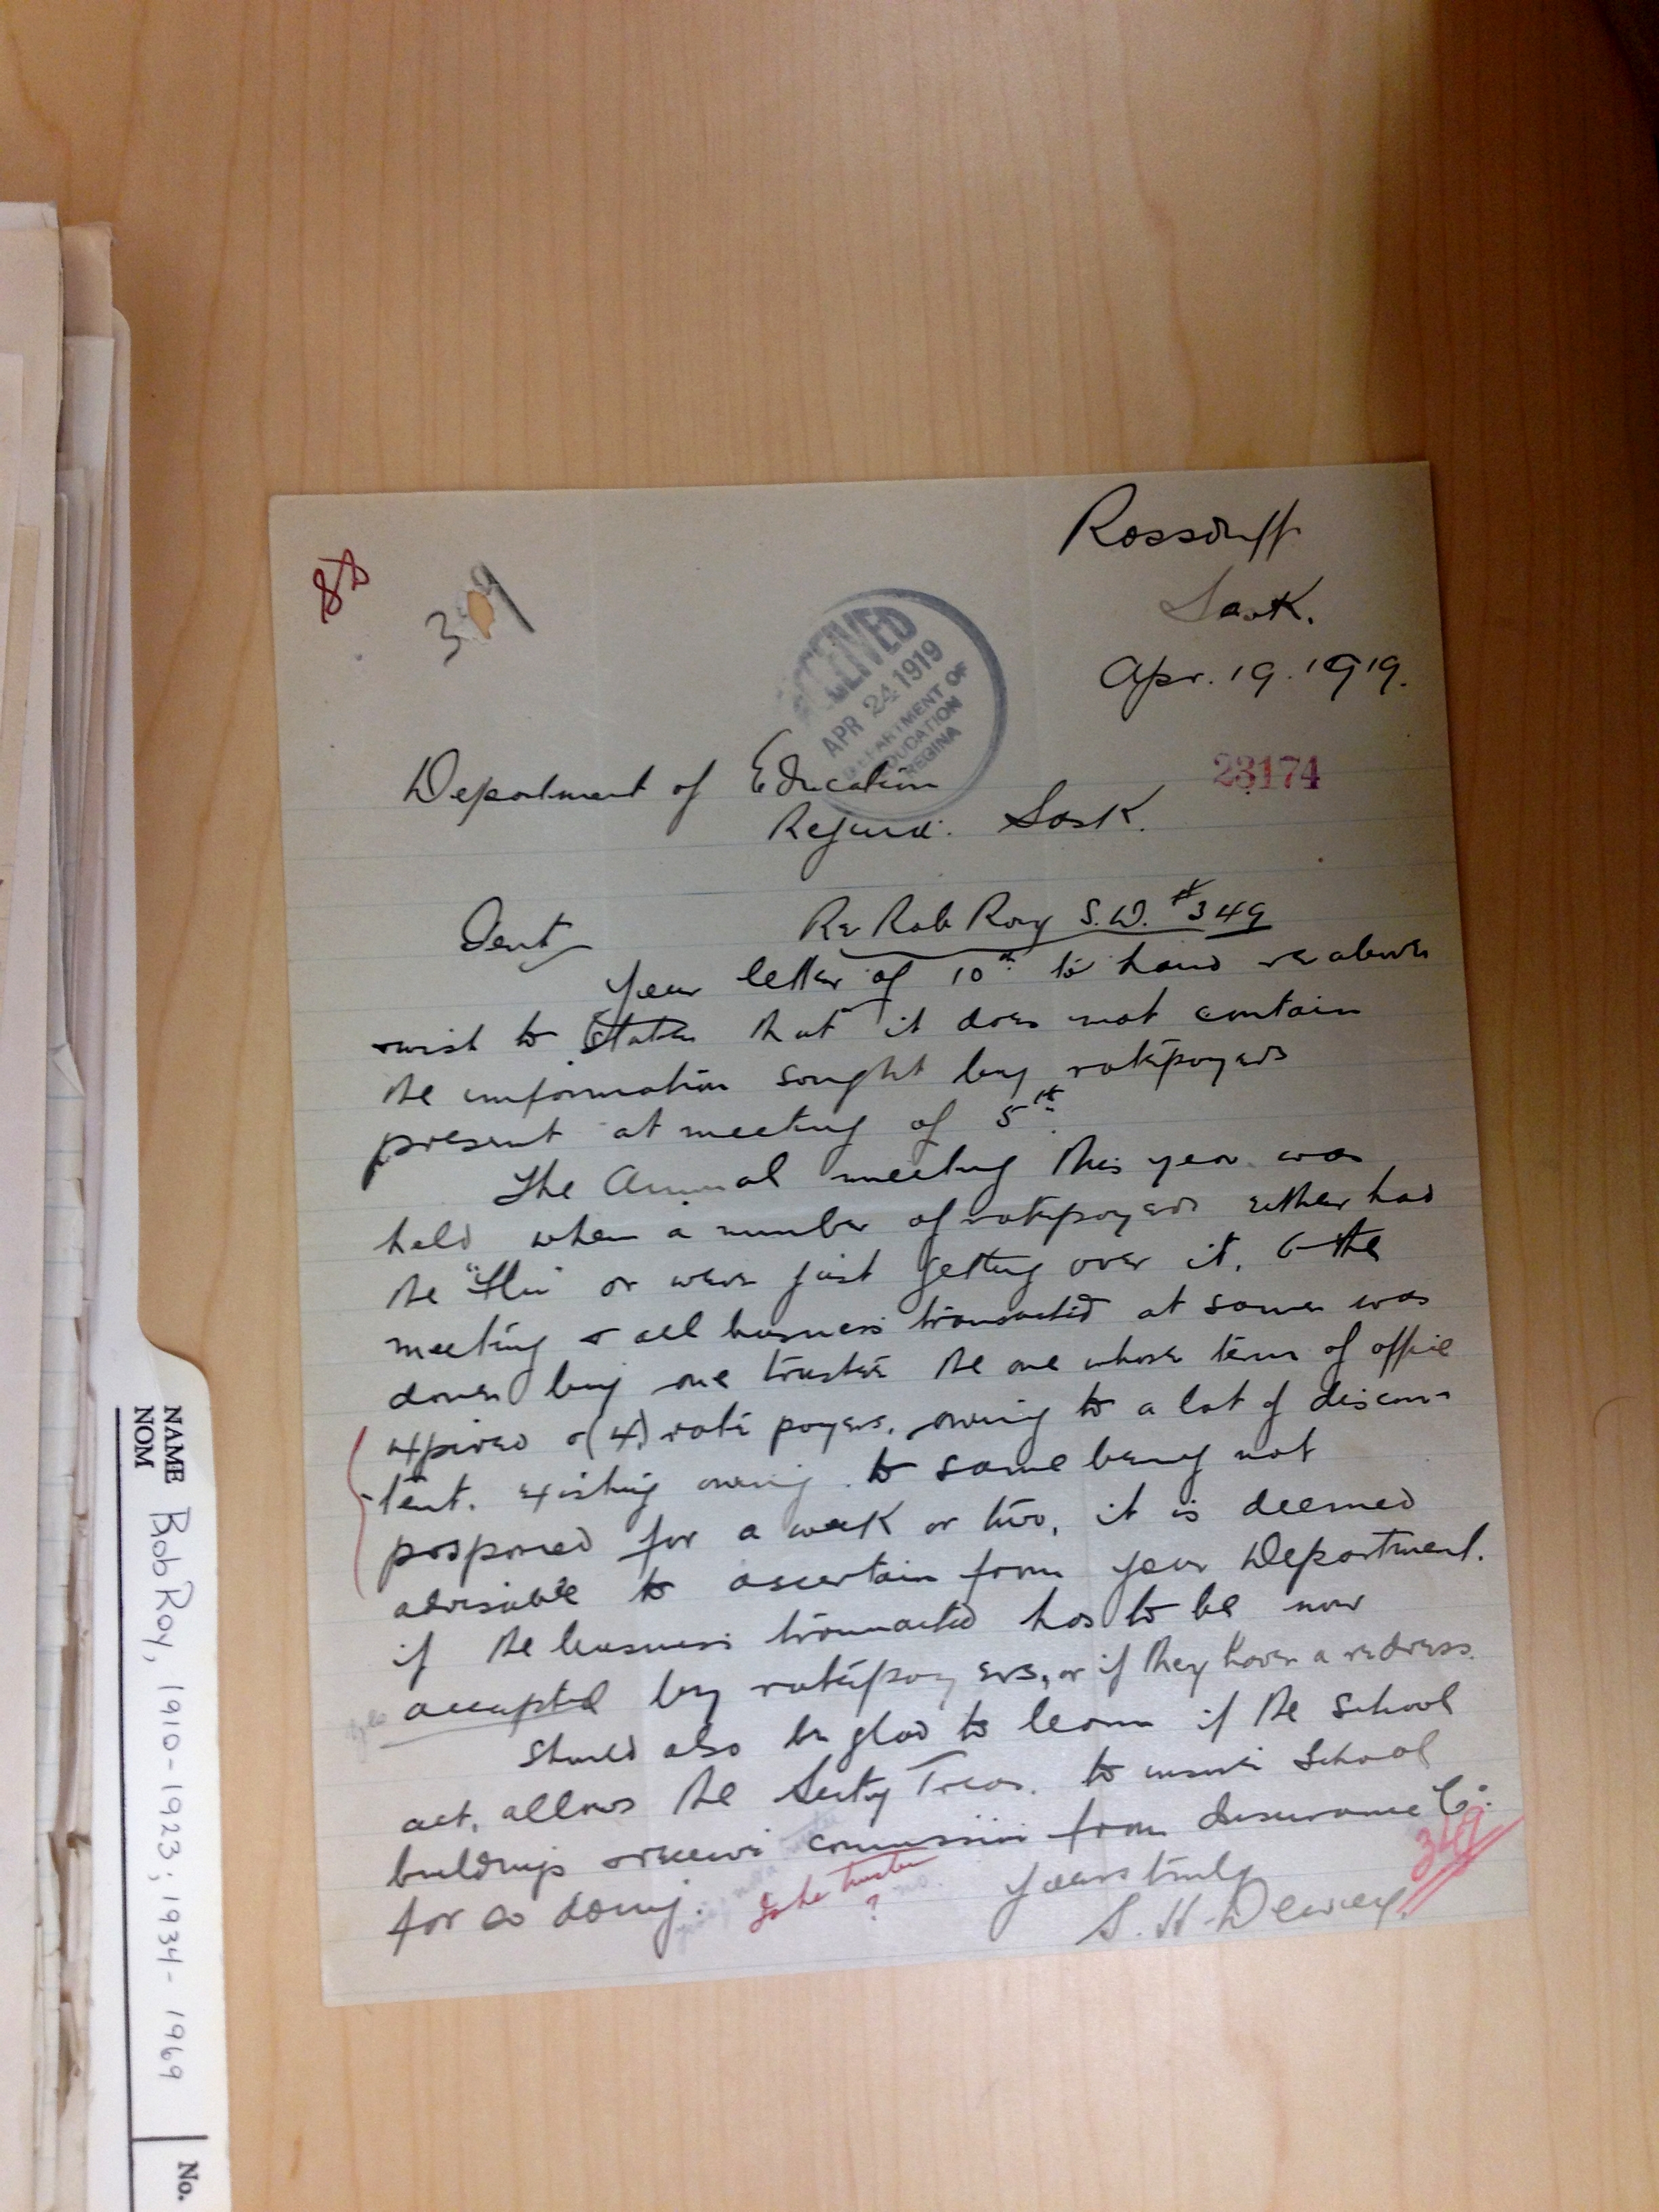 Rossduff
Sask.
Apr. 19. 1919.
88
349
RECEIVED
APR 24 1919
DEPARTMENT OF
EDUCATION
REGINA
23174
Department of Education
Regina. Sask.
Gent
Re Rob Roy S.D. #349
Your letter of 10th to hand re above
& wish to state that it does not contain
the information sought by ratepayers
present at meeting of 5th.
The Annual meeting this year was
held when a number of ratepayers either had
the "Flu" or were just getting over it, & the
meeting & all business transacted at same was
done by one trustee the one whose term of office
expired & (4) rate payers. owing to a lot of discon-
tent. existing owing to same being not
posponed for a week or two, it is deemed
advisable to ascertain from your Department.
if the business transacted has to be now
accepted by ratepayers, or if they have a redress.
yes
Should also be glad to learn if the School
act, allows the Secty Treas. to insure School
buildings & receive commission from Insurance Co.
for so doing.
Is he trustee
?
no.
Yours truly
S. H. Dewey.
349
NAME
NOM
Bob Roy, 1910-1923; 1934-1969
No.